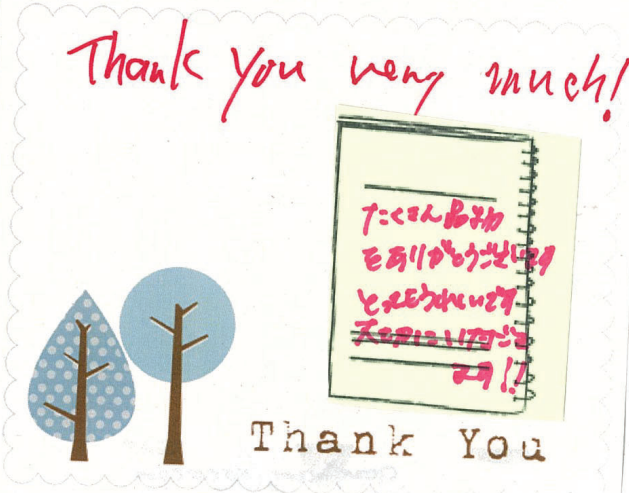 Thank you very much!
たくさん
をありがとうございます
とってもうれしいです
ます!!
Thank You